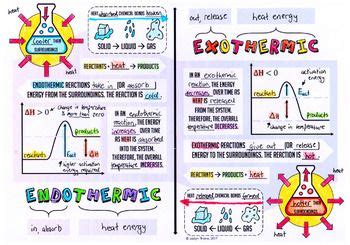 heat
heat
heat
heat
Cooler THAN
SURROUNDINGS
HEAT absorbed CHEMICAL BONDS broken
SOLID → LIQUID → GAS
REACTANTS + heat → PRODUCTS
ENDOTHERMIC REACTIONS take in (OR absorb)
ENERGY FROM THE SURROUNDINGS. THE REACTION IS cold.
ΔH > 0
change in temperature
is more than zero
products
reactants
Eact
higher activation
energy required
IN AN endothermic
reaction, THE ENERGY
increases OVER TIME
AS HEAT IS absorbed
INTO THE SYSTEM.
THEREFORE, THE OVERALL
temperature INCREASES.
ENDOTHERMIC
in, absorb
heat energy
out, release
heat energy
EXOTHERMIC
IN AN exothermic
reaction, THE ENERGY
decreases OVER TIME AS
HEAT IS released
FROM THE SYSTEM.
THEREFORE, THE OVERALL
temperature DECREASES.
ΔH < 0
activation
energy
Eact
reactants
products
change in temperature
EXOTHERMIC REACTIONS give out (OR release)
ENERGY TO THE SURROUNDINGS. THE REACTION IS hot.
REACTANTS → PRODUCTS + heat
HEAT released CHEMICAL BONDS formed
SOLID ← LIQUID ← GAS
hotter THAN
SURROUNDINGS
heat
heat
heat
heat